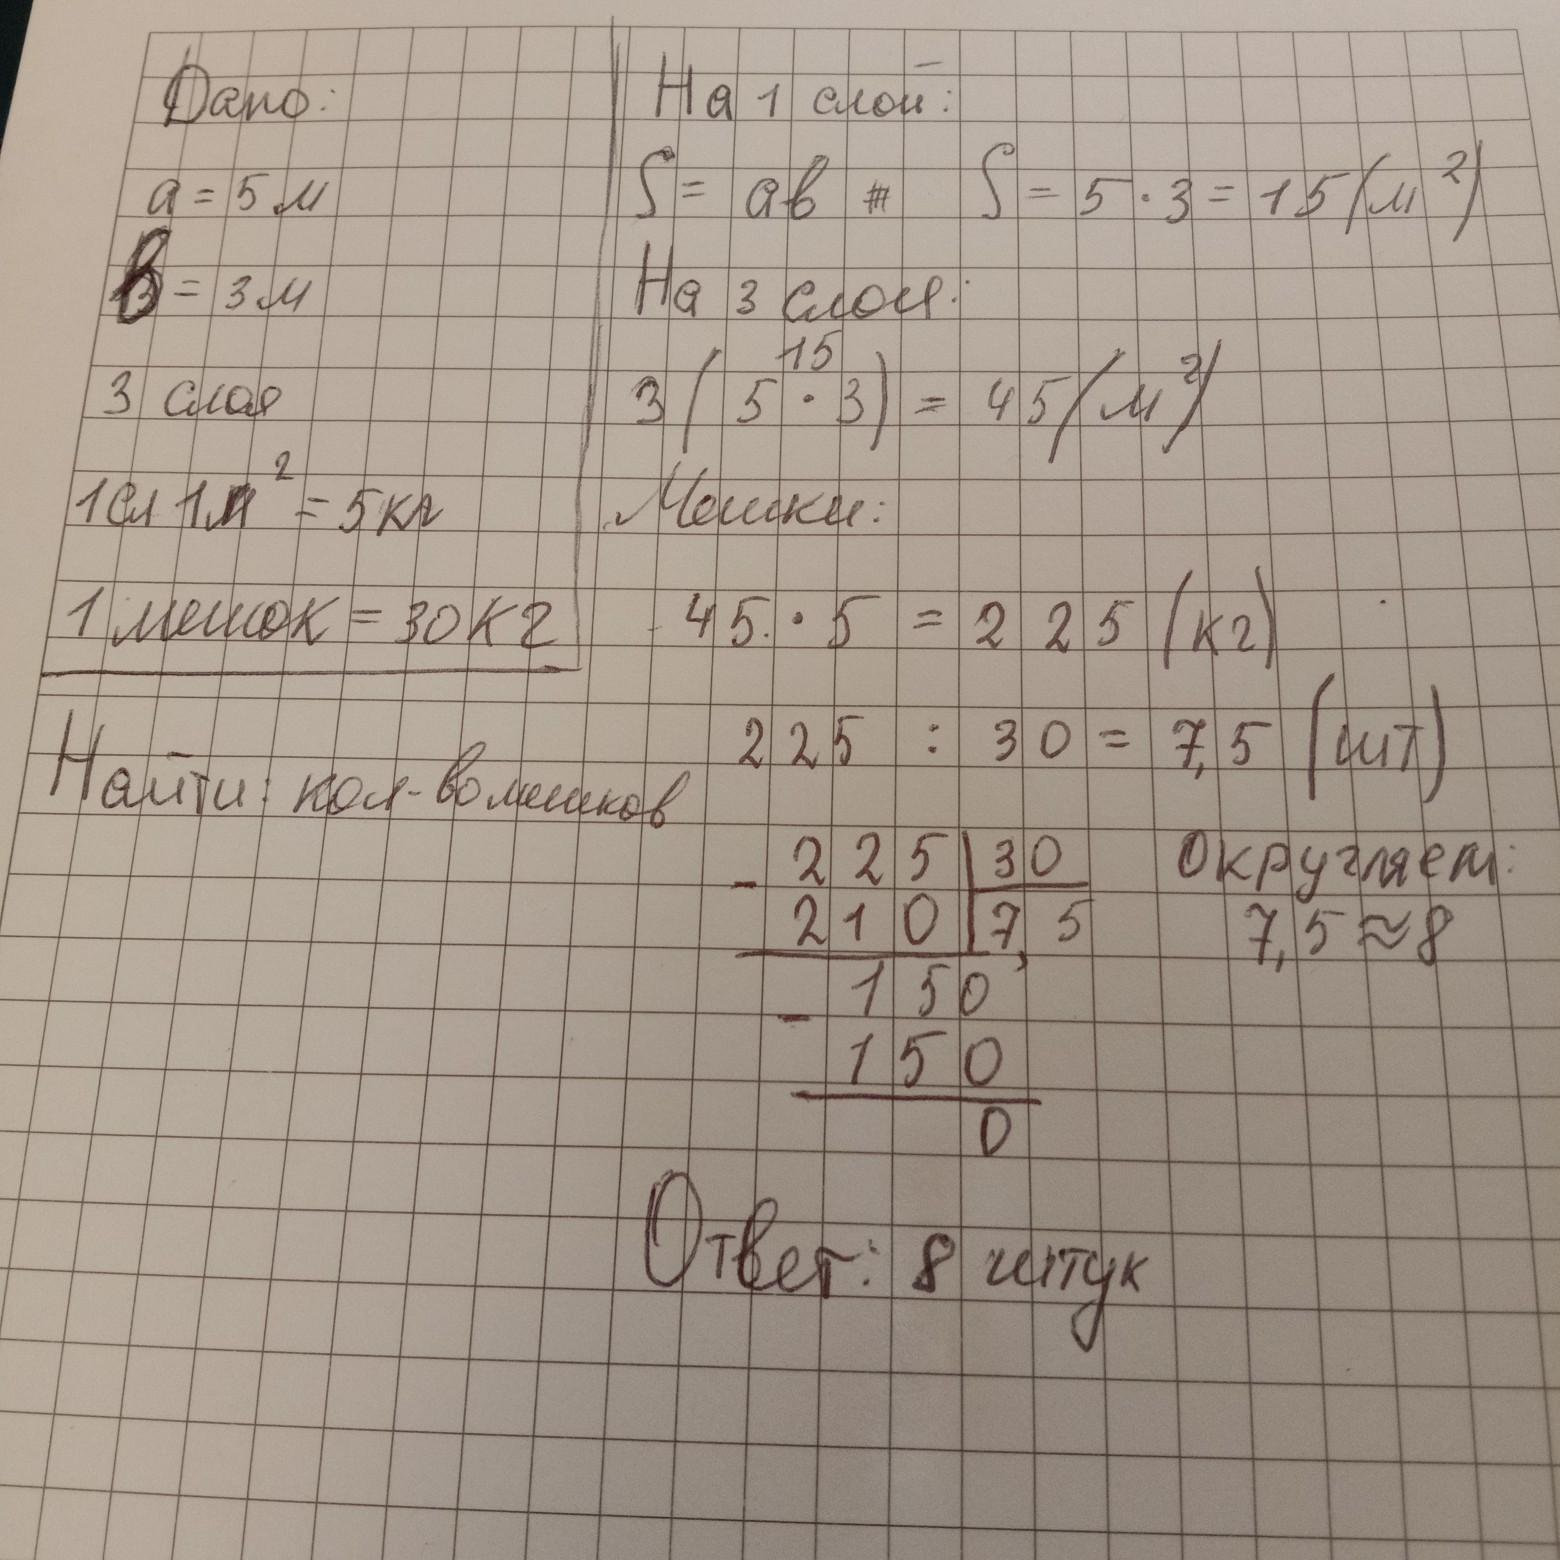 Дано:
a = 5 м
в = 3 м
3 слоя
1 сл 1 м² = 5 кг
1 мешок = 30 кг
Найти: кол-во мешков
На 1 слой:
S = ав S = 5 · 3 = 15 (м²)
На 3 слоя:
15
3 (5 · 3) = 45 (м²)
Мешки:
45 · 5 = 225 (кг)
225 : 30 = 7,5 (шт)
- 225 | 30
210 | 7,5
- 150
150
0
Округляем:
7,5 ≈ 8
Ответ: 8 штук